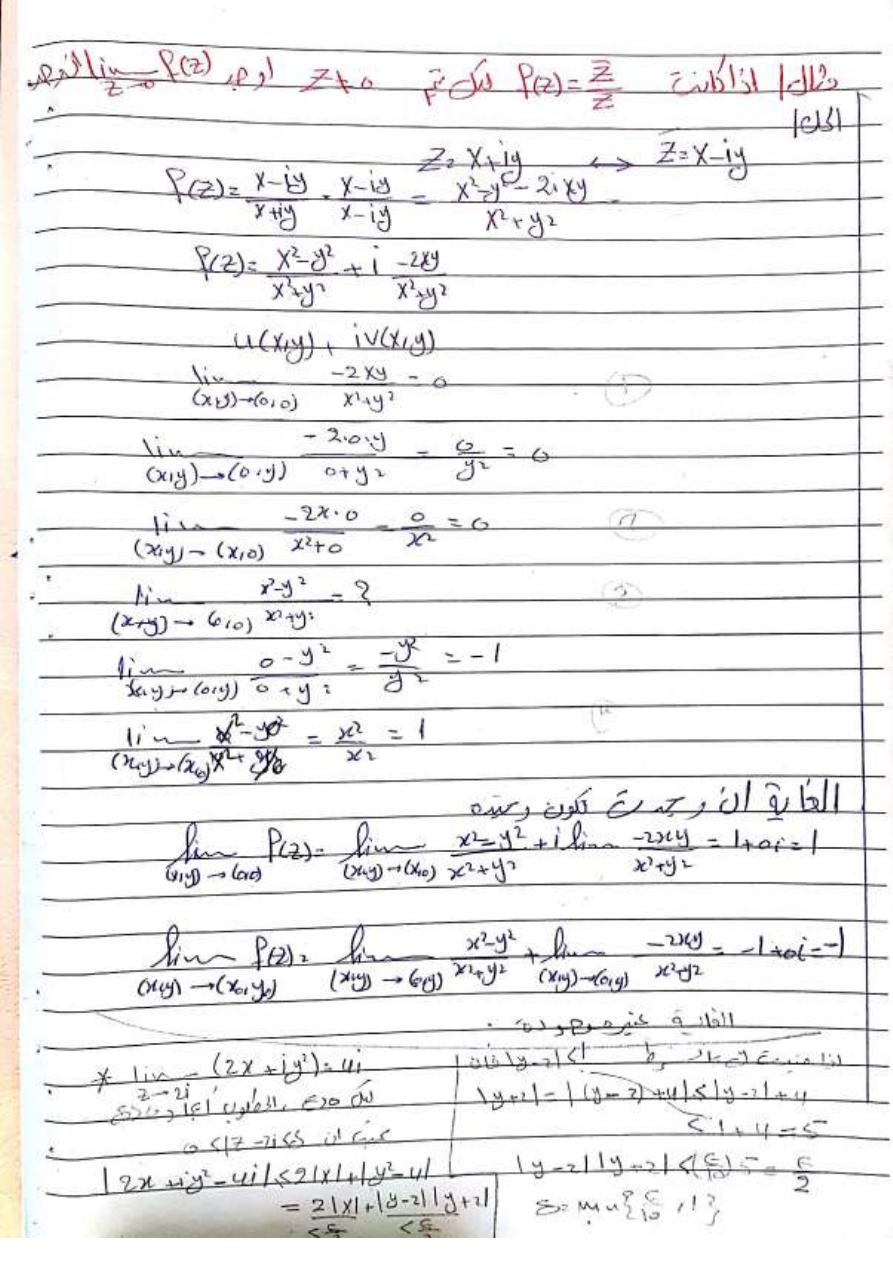 مثال/ اذا كانت f(z) = z̄/z لكل z ≠ 0 اوجد lim z→0 f(z)
الحل/
z = x+iy ↔ z̄ = x-iy
f(z) = (x-iy)/(x+iy) · (x-iy)/(x-iy) = (x²-y²-2ixy)/(x²+y²)
f(z) = (x²-y²)/(x²+y²) + i (-2xy)/(x²+y²)
u(x,y) + iv(x,y)
lim (x,y)→(0,0) (-2xy)/(x²+y²) = 0
lim (x,y)→(0,y) (-2·0·y)/(0+y²) = 0/y² = 0
lim (x,y)→(x,0) (-2x·0)/(x²+0) = 0/x² = 0
lim (x,y)→(0,0) (x²-y²)/(x²+y²) = ?
lim (x,y)→(0,y) (0-y²)/(0+y²) = -y²/y² = -1
lim (x,y)→(x,0) = x²/x² = 1
الغاية ان وجدت تكون وحيده
lim (x,y)→(0,0) f(z) = lim (x,y)→(x,0) (x²-y²)/(x²+y²) + i lim (-2xy)/(x²+y²) = 1+0i = 1
lim (x,y)→(x₀,y₀) f(z) = lim (x,y)→(0,y) (x²-y²)/(x²+y²) + lim (x,y)→(0,y) (-2xy)/(x²+y²) = -1+0i = -1
الغاية غير موجودة .
* lim z→2i (2x+iy²) = 4i
لكل
بحيث ان 0<|z-2i|<δ
|2x+iy²-4i| ≤ 2|x|+|y²-4|
= 2|x|+|y-2||y+2|
|y-2|<1 فان
|y+2| = |(y-2)+4| ≤ |y-2|+4
< 1+4 = 5
|y-2||y+2| < (ε/10) 5 = ε/2
δ = min{ε/10 , 1}